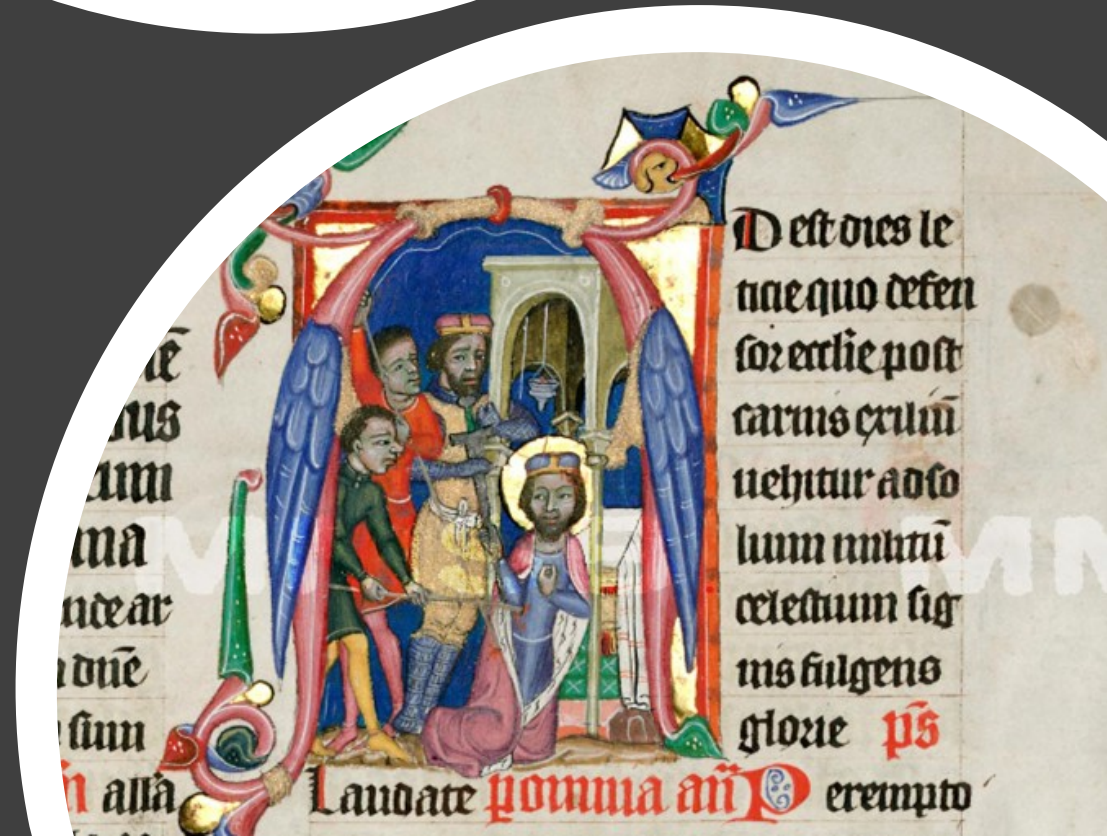 bus
cum
ma
dn̄e
sum
allā
Dest dies le
ticie quo defen
sor eccl̄ie post
carnis exiliū
uehitur ad so
lium militū
celestium sig
nis fulgens
glorie p̄s
Laudate p omnia an̄ Perempto